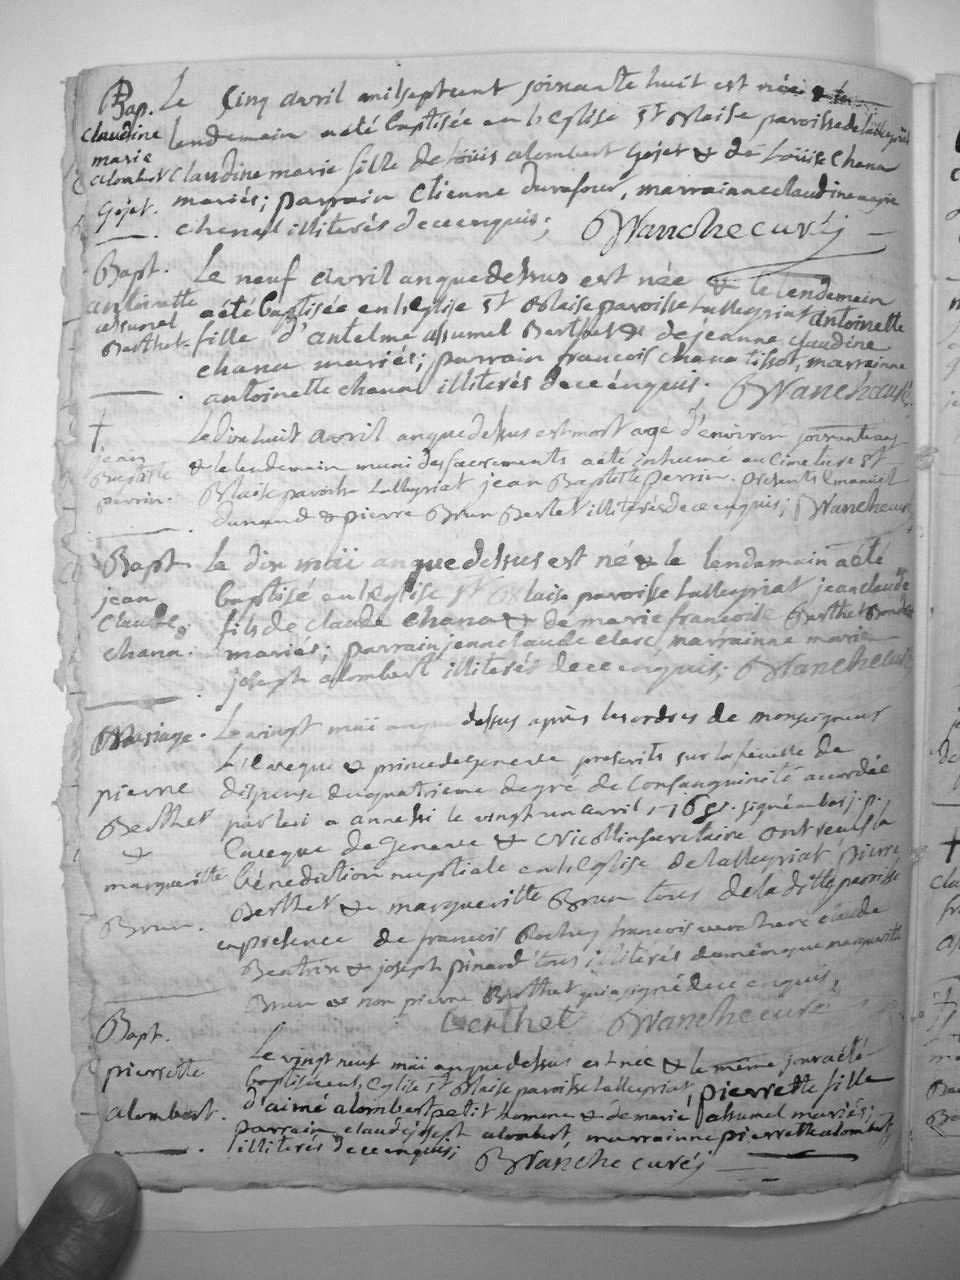 Bap.
claudine
marie
alombert
Gojet.
Le Cinq avril milseptcent soixante huit est née &
lendemain a eté baptisée en l'eglise St Blaise paroisse de lalleyriat
claudine marie fille de loüis alombert Gojet & de Loüise Chana
mariés; parrain Etienne durafour, marrainne claudine marie
chenal illiterés de ce enquis; Blanche curé
Bapt.
antoinette
assumel
Berthet
Le neuf avril an que dessus est née & le lendemain
a eté baptisée en l'eglise St Blaise paroisse Lalleyriat antoinette
fille d'antelme assumel Berthet & de jeanne claudine
chana mariés; parrain francois chana tissot, marrainne
antoinette chanal illiterés de ce enquis. Blanche curé
†
jean
Baptiste
perrin.
Le dix huit avril an que dessus est mort agé d'environ soixante ans
& le lendemain muni des sacrements a eté inhumé au cimetiere St
Blaise paroisse Lalleyriat jean Baptiste perrin. presents Emanuel
dunand & pierre Brun Berlet illiterés de ce enquis; Blanche curé
Bapt.
jean
Claude
chana.
Le dix maï an que dessus est né & le lendemain a eté
baptisé en l'eglise St Blaise paroisse Lalleyriat jean claude
fils de claude chana & de marie francoise Berthet
mariés; parrain jean claude clerc, marrainne marie
joseph alombert illiterés de ce enquis; Blanche curé
Mariage.
pierre
Berthet
&
margueritte
Brun.
Le vingt maï an que dessus après les ordres de monseigneur
L'Eveque & prince de geneve prescrits sur la feuille de
dispense du quatrieme degré de Consanguinité accordée
par lui a annessi le vingt un avril 1768. signé en bas j. p.
Eveque de Geneve & Nicollin secretaire ont reçus la
bénediction nuptiale en l'eglise de Lalleyriat pierre
Berthet & margueritte Brun tous de la ditte paroisse
en presence de francois Rochey francois claude
Beatrix & joseph pinard tous illiterés de même que margueritte
Brun & non pierre Berthet qui a signé de ce enquis,
Berthet Blanche curé
Bapt.
pierrette
alombert.
Le vingt neuf maï an que dessus est née & le même jour a eté
baptisée en l'eglise St Blaise paroisse Lalleyriat pierrette fille
d'aimé alombert petit homme & de marie assumel mariés;
parrain claude joseph alombert, marrainne pierrette alombert
illiterés de ce enquis; Blanche curé